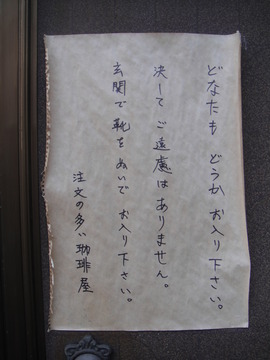 どなたも どうか お入り下さい。
決して ご遠慮はありません。
玄関で 靴をぬいで お入り下さい。
注文の多い珈琲屋